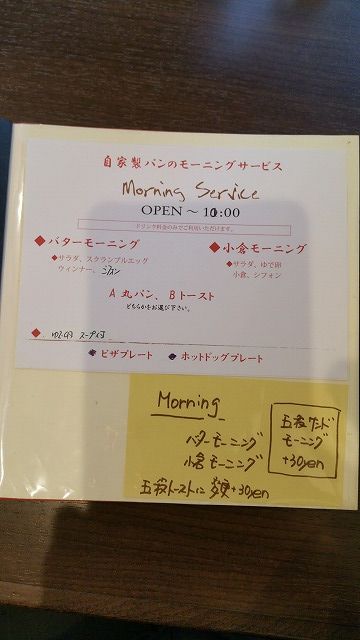 自家製パンのモーニングサービス
Morning Service
OPEN～10:00
ドリンク料金のみでご利用いただけます。
◆バターモーニング
◆サラダ、スクランブルエッグ
ウィンナー、シフォン
◆小倉モーニング
◆サラダ、ゆで卵
小倉、シフォン
A 丸パン、B トースト
どちらかをお選び下さい。
スープ付
ピザプレート
ホットドッグプレート
Morning
バターモーニング
小倉モーニング
五穀サンド
モーニング
+30yen
五穀トーストに変更+30yen